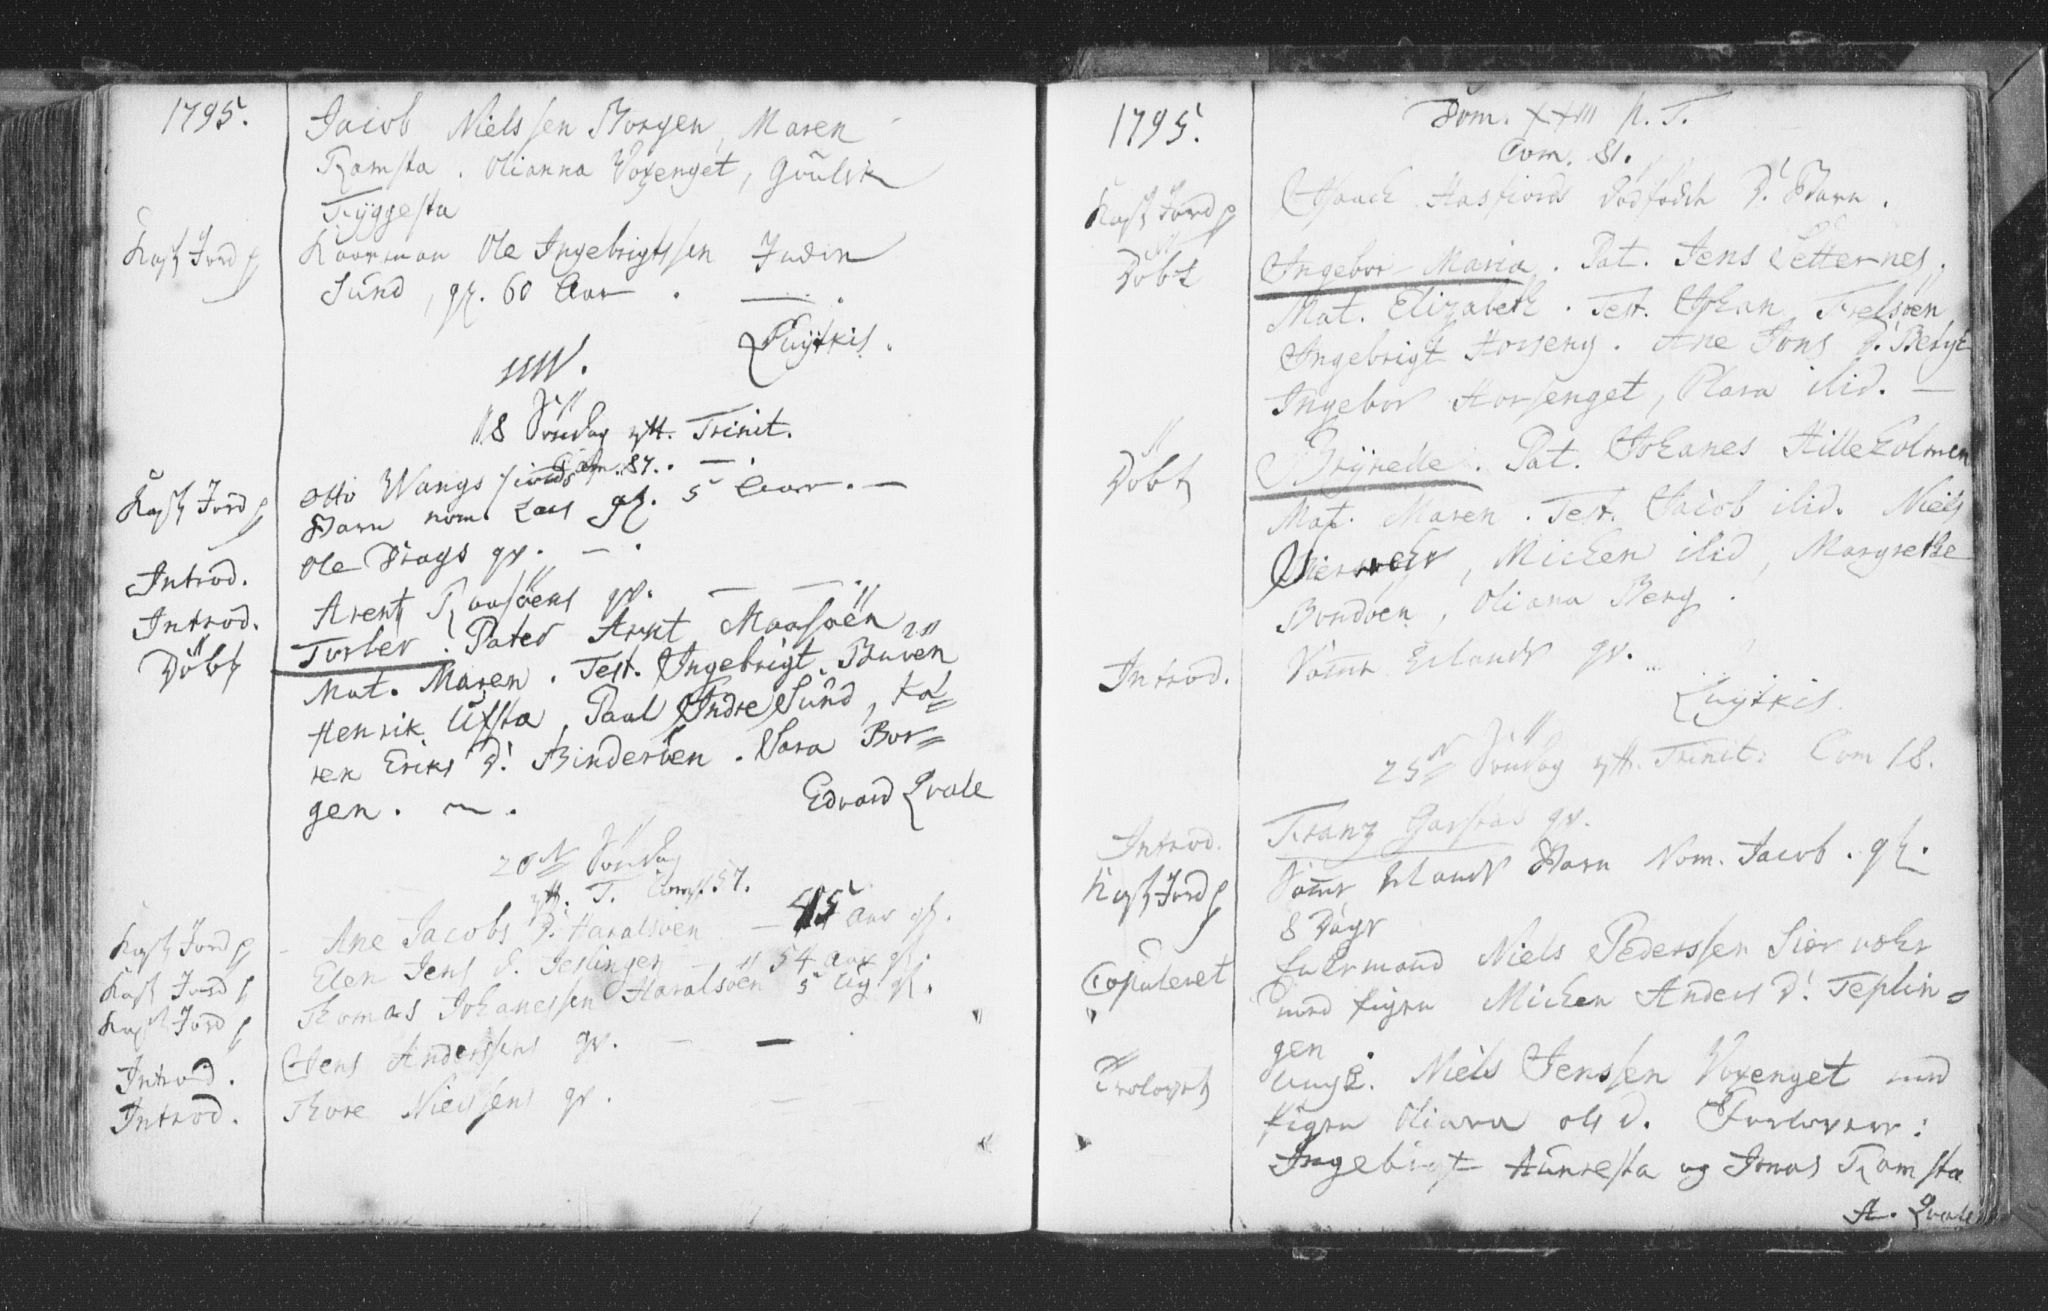 1795.
Jacob Nielssen Borgen, Maren
Ramsta. Olianna Voxenget, Gŭŭlik
Trÿggesta
Kast Jord p Kaarman Ole Ingebrigtssen Indre
Sŭnd, gl. 60 Aar. —
Luÿtkis.
18 Söndag ytt. Trinit.
Com. 87. —
Kast Jord p Otto Wangs
Barn nom. Lars gl. 5 Aar. —
Introd. Ole Drags qv. — .
Introd. Arent Raasöens qv. —
Döbt Torber. Pater Arnt Maasöen
Mat. Maren. Test. Ingebrigt Buven
Henrik Ŭfsta, Paul Indre Sŭnd, Ka=
ren Eriks D: Binderöen. Sara Bor=
gen. — . Edvard Qvale
20de Söndag
ytt. T. Com. 57.
Kast Jord p Ane Jacobs D: Haralsöen — 45 aar gl.
Kast Jord p Elen Jens D. Teplingen — 54 aar gl.
Kast Jord p Thomas Johanessen Haralsöen 5 Ug. gl.
Introd. Jens Anderssens qv. — —
Introd. Thore Nielssens qv.
1795.
Dom. XXIII p. T.
Com. 81.
Kast Jord p Isaach Aasfiords dödfödde D. Barn.
Döbt Ingebor Maria. Pat. Jens Setternes,
Mat. Elizabeth. Test. Johan Frelsöen
Ingebrigt Horseng. Ane Jons D: Beryt
Ingebor Horsenget, Clara ilid. —
Döbt Brÿnelle. Pat. Johanes Hilleholmen
Mat. Maren. Test. Jacob ilid. Niels
Siervær, Micken ilid, Margrethe
Bondöen, Oliana Berg.
Introd. Erlands qv.
Luÿtkis.
25de Söndag ytt. Trinit. Com 18.
Introd. Franz Garstas qv.
Kast Jord p Erlands Barn Nom. Jacob. gl.
8 Dage
Copuleret Enkemand Niels Pederssen Siervær
med Pigen Micken Anders D: Teplin=
gen.
Trolovet Ungk. Niels Jenssen Voxenget med
Pigen Oliana Ols D. Forlovere:
Ingebrigt Aŭnesta og Jonas Ramsta
A. Qvale